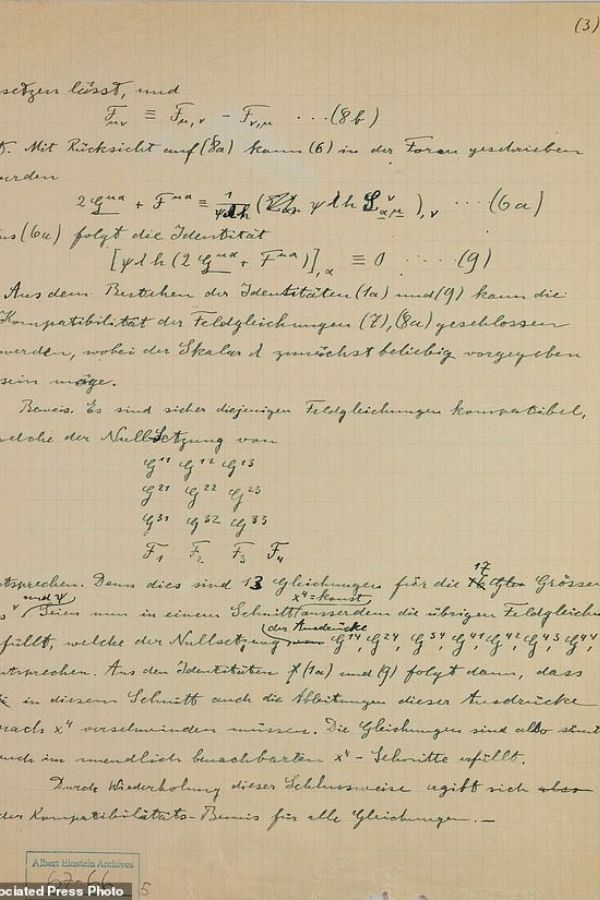 (3)
setzen lässt, und
F_{μν} ≡ F_{μ,ν} - F_{ν,μ} ··· (8b)
Mit Rücksicht auf (8a) kann (6) in der Form geschrieben
erden
2 G^{μα} + F^{μα} ≡ 1/ψλh ( ψ λ h ),ν ··· (6a)
us (6a) folgt die Identität
[ψλh (2 G^{μα} + F^{μα})],α ≡ 0 ···· (9)
Aus dem Bestehen der Identitäten (1a) und (9) kann die
Kompatibilität der Feldgleichungen (7), (8a) geschlossen
werden, wobei der Skalar λ zunächst beliebig vorgegeben
sein möge.
Beweis. Es sind sicher diejenigen Feldgleichungen kompatibel,
welche der Nullsetzung von
G^{11} G^{12} G^{13}
G^{21} G^{22} G^{23}
G^{31} G^{32} G^{33}
F_1 F_2 F_3 F_4
17
ntsprechen. Denn dies sind 13 Gleichungen für die Grössen
und ψ x^4 = konst
Seien nun in einem Schnitt ausserdem die übrigen Feldgleichu
der Ausdrücke
füllt, welche der Nullsetzung G^{14}, G^{24}, G^{34}, G^{41}, G^{42}, G^{43}, G^{44},
ntsprechen. Aus den Identitäten (1a) und (9) folgt dann, dass
in diesem Schnitt auch die Ableitungen dieser Ausdrücke
nach x^4 verschwinden müssen. Die Gleichungen sind also sämt
uch im unendlich benachbarten x^4 - Schnitte erfüllt.
Durch Wiederholung dieser Schlussweise ergibt sich also
der Kompatibilitäts-Beweis für alle Gleichungen. —
Albert Einstein Archives
5
ociated Press Photo